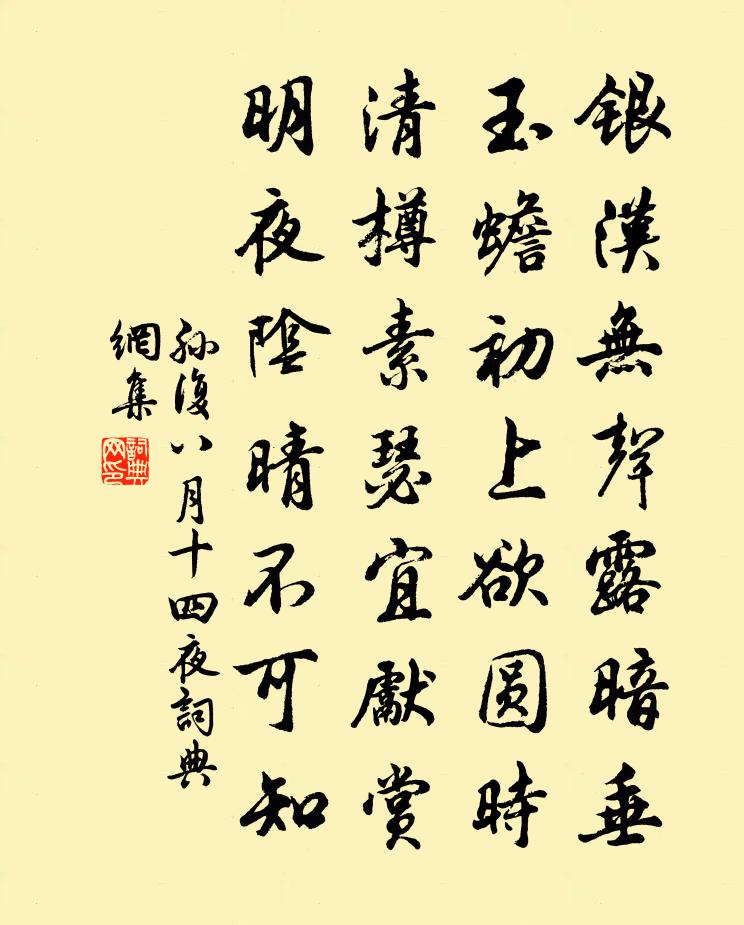 銀漢無聲露暗垂
玉蟾初上欲圓時
清樽素瑟宜獻賞
明夜陰晴不可知
孫復八月十四夜詞典
網集
詞典
网印